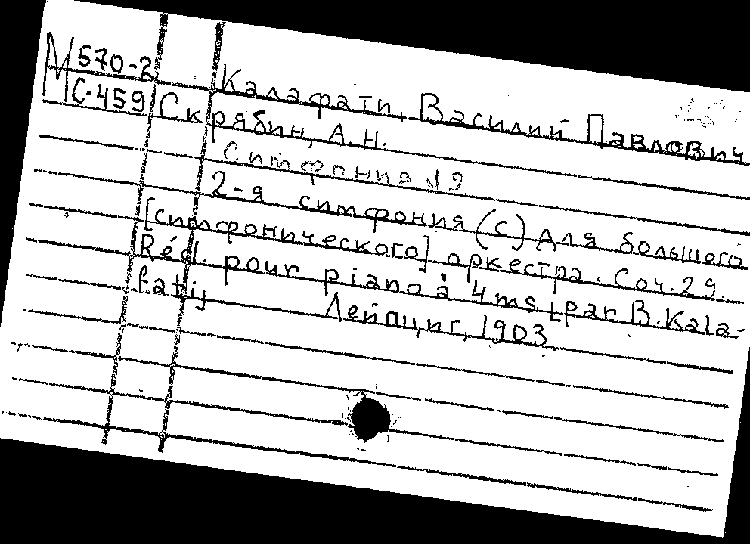 М 570-2 Калафати, Василий Павлович
С-459 Скрябин, А.Н.
Симфония
2-я симфония (c) для большого
[симфонического] оркестра. Соч. 29.
Réd. pour piano à 4 ms par B. Kala-
fatij Лейпциг, 1903